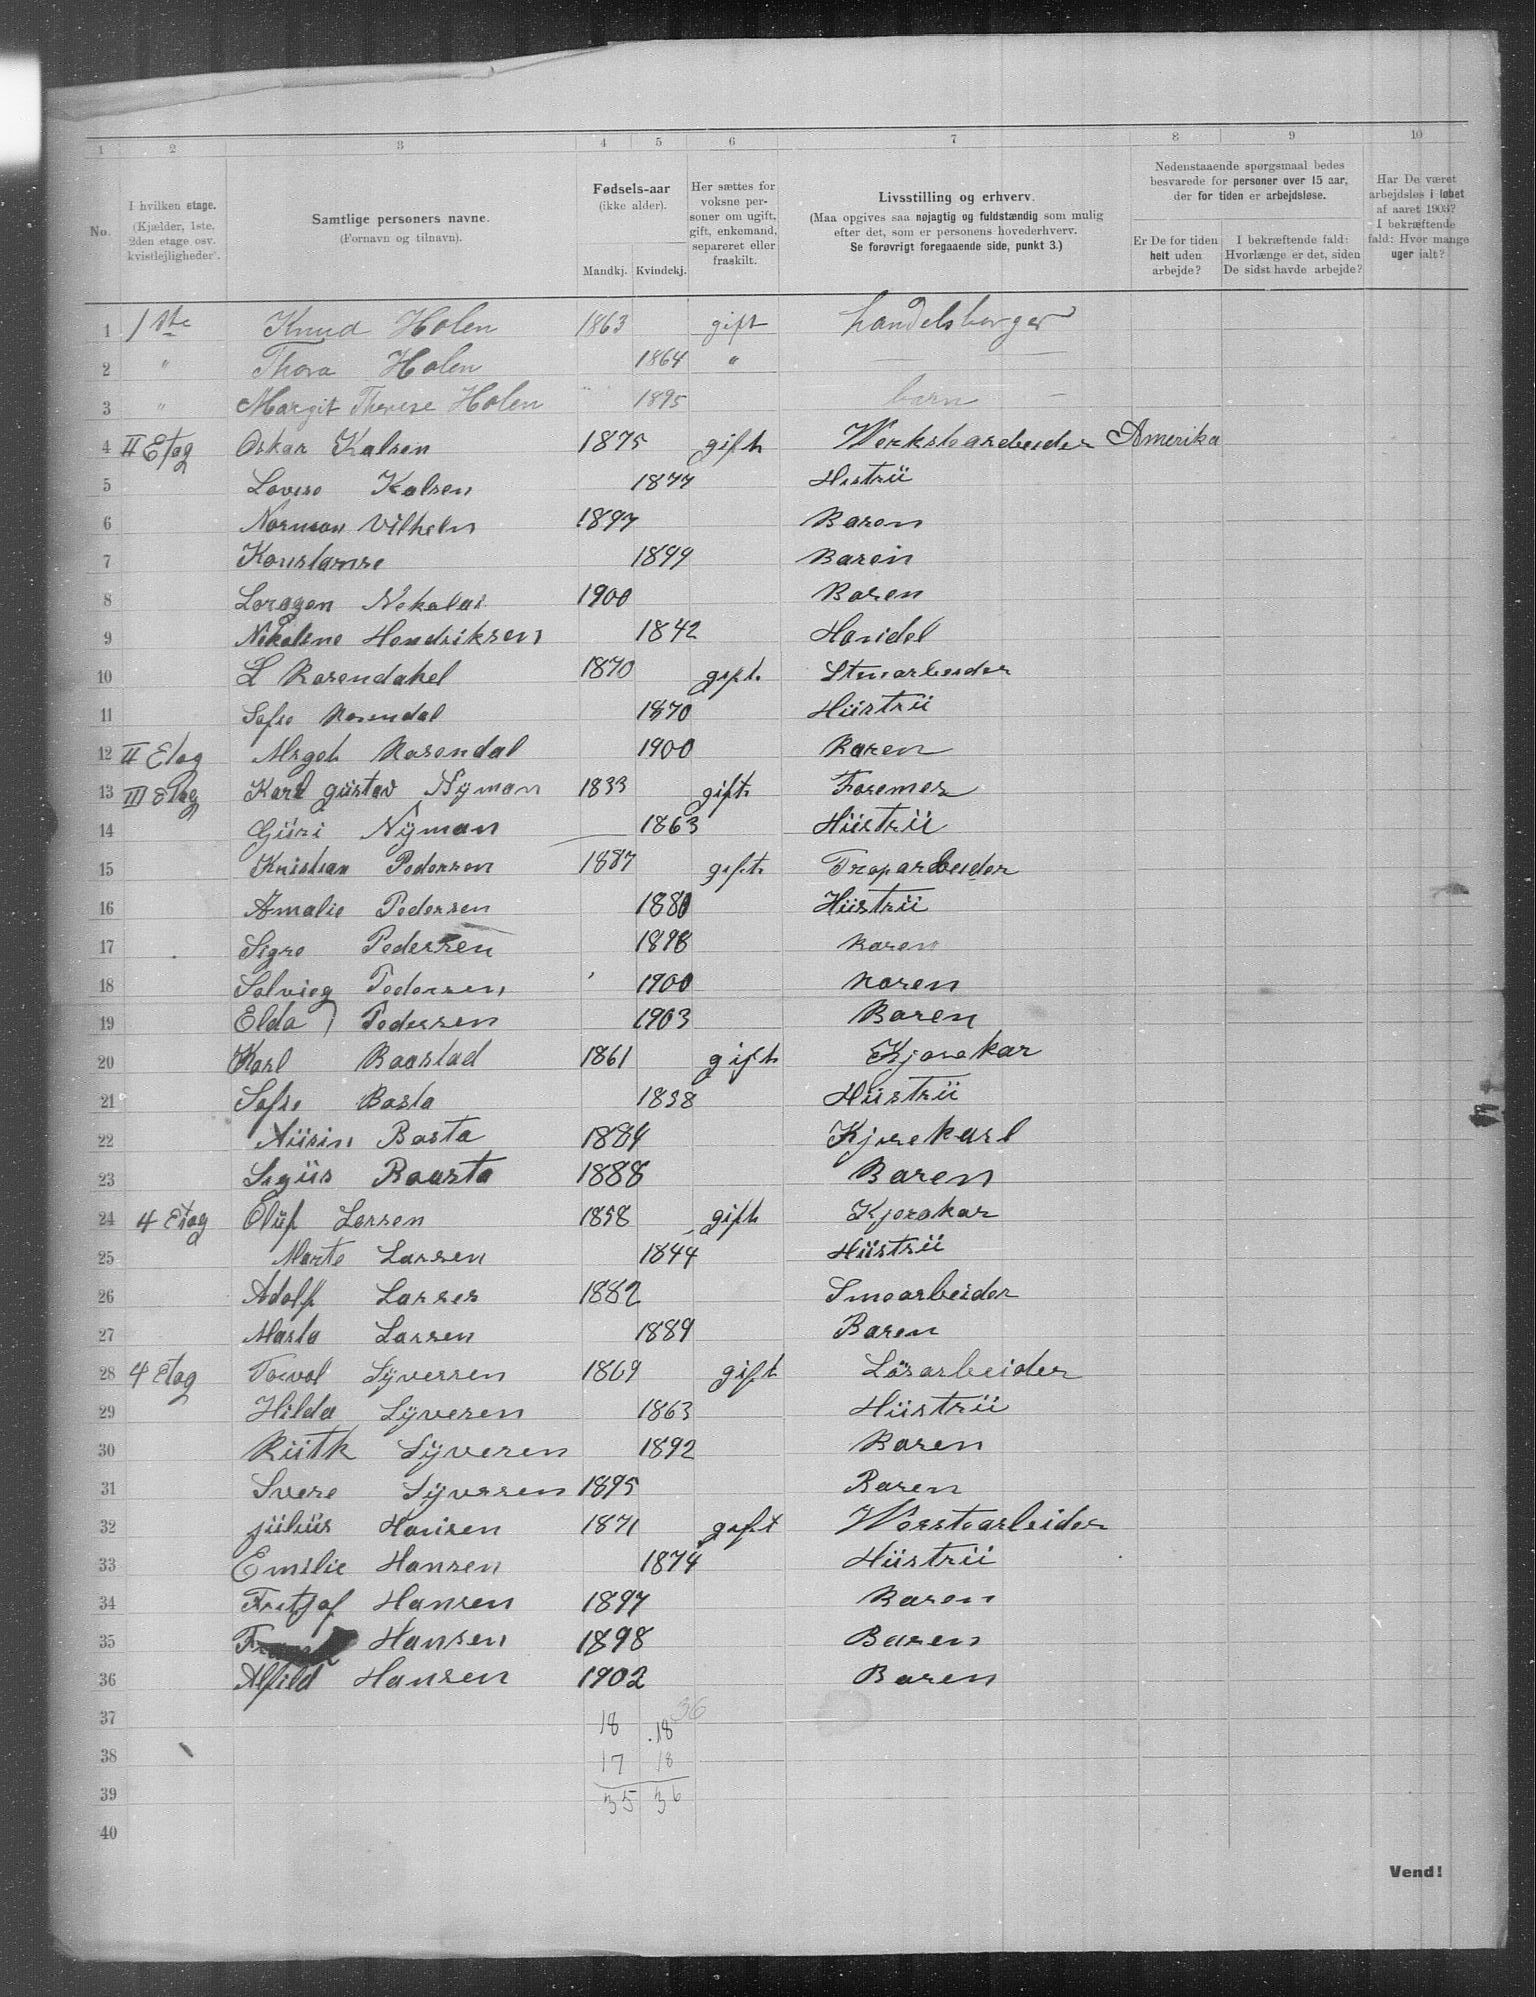 1 2 3 4 5 6 7 8 9 10
No.
I hvilken etage.
(Kjælder, 1ste,
2den etage osv.
kvistlejligheder).
Samtlige personers navne.
(Fornavn og tilnavn).
Fødsels-aar
(ikke alder).
Mandkj. Kvindekj.
Her sættes for
voksne per-
soner om ugift,
gift, enkemand,
separeret eller
fraskilt.
Livsstilling og erhverv.
(Maa opgives saa nøjagtig og fuldstændig som mulig
efter det, som er personens hovederhverv.
Se forøvrigt foregaaende side, punkt 3.)
Nedenstaaende spørgsmaal bedes
besvarede for personer over 15 aar,
der for tiden er arbejdsløse.
Er De for tiden
helt uden
arbejde?
I bekræftende fald:
Hvorlænge er det, siden
De sidst havde arbejde?
Har De været
arbejdsløs i løbet
af aaret 1903?
I bekræftende
fald: Hvor mange
uger ialt?
1 1ste Knud Holen 1863 gift handelsborger
2 " Thora Holen 1864 "
3 " Margit Therese Holen 1895 barn
4 II Etag Oskar Kalsen 1875 gift Werkstarbeider Amerika
5 Lovise Kalsen 1877 Hustrü
6 Norman Vilhelm 1897 Baren
7 Konstanse 1899 Baren
8 Loragen Nekolai 1900 Baren
9 Nikoline Hendriksen 1842 Handel
10 L Rosendahel 1870 gift Stenarbeider
11 Sofie Rosendal 1870 Hüstrü
12 II Etag Mrget Rosendal 1900 Baren
13 III Etag Karl güstav Nÿman 1833 gift Foremer
14 Güri Nÿman 1863 Hüstrü
15 Kristian Pedersen 1887 gift Troparbeider
16 Amalie Pedersen 1880 Hüstrü
17 Sigre Pedersen 1898 Baren
18 Solvieg Pedersen 1900 Baren
19 Elda Pedersen 1903 Baren
20 Karl Baastad 1861 gift Kjorekar
21 Sofie Basta 1858 Hüstrü
22 Basta 1884 Kjorekarl
23 Sigüs Baasta 1888 Baren
24 4 Etag Oluf Larsen 1858 gift Kjorekar
25 Marte Larsen 1844 Hüstrü
26 Adolf Larsen 1882 Smoarbeider
27 Marta Larsen 1889 Baren
28 4 Etag Torval Sÿversen 1869 gift Lösarbeider
29 Hilda Sÿversen 1863 Hüstrü
30 Rüth Sÿveren 1892 Baren
31 Svere Sÿversen 1895 Baren
32 jülius Hansen 1871 gift Werstearbeider
33 Emelie Hansen 1874 Hüstrü
34 Fritjof Hansen 1897 Baren
35 Hansen 1898 Baren
36 Alfild Hansen 1902 Baren
37 18 18 36
38 17 18
39 35 36
40
Vend!